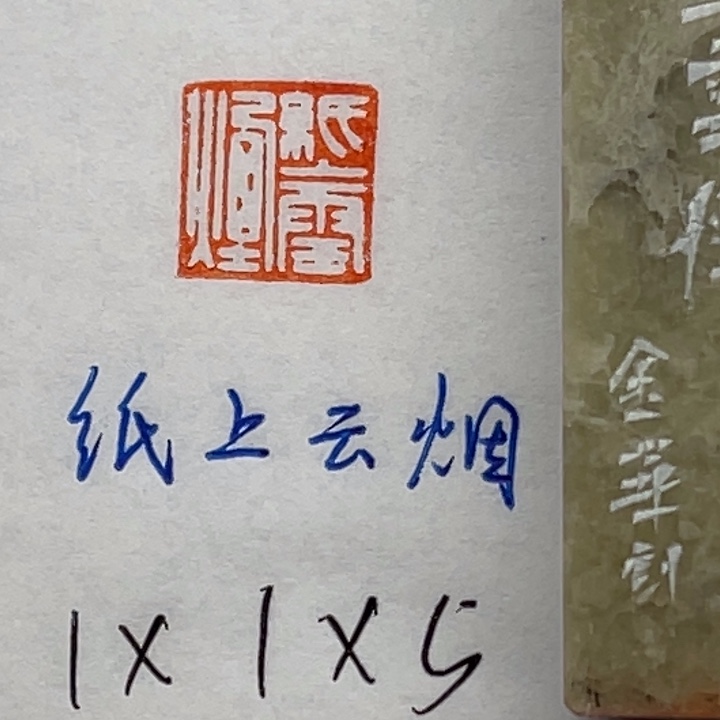 紙上雲煙
纸上云烟
1X1X5
金華刻